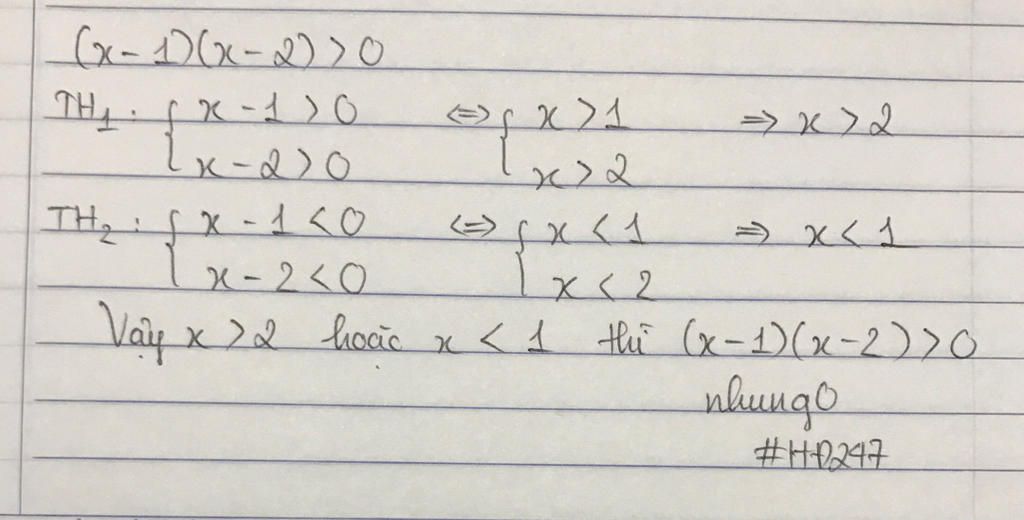 (x-1)(x-2)>0
TH1: { x-1>0 ⇔ { x>1 ⇒ x>2
x-2>0 x>2
TH2: { x-1<0 ⇔ { x<1 ⇒ x<1
x-2<0 x<2
Vậy x>2 hoặc x<1 thì (x-1)(x-2)>0
nhung0
#HĐ247